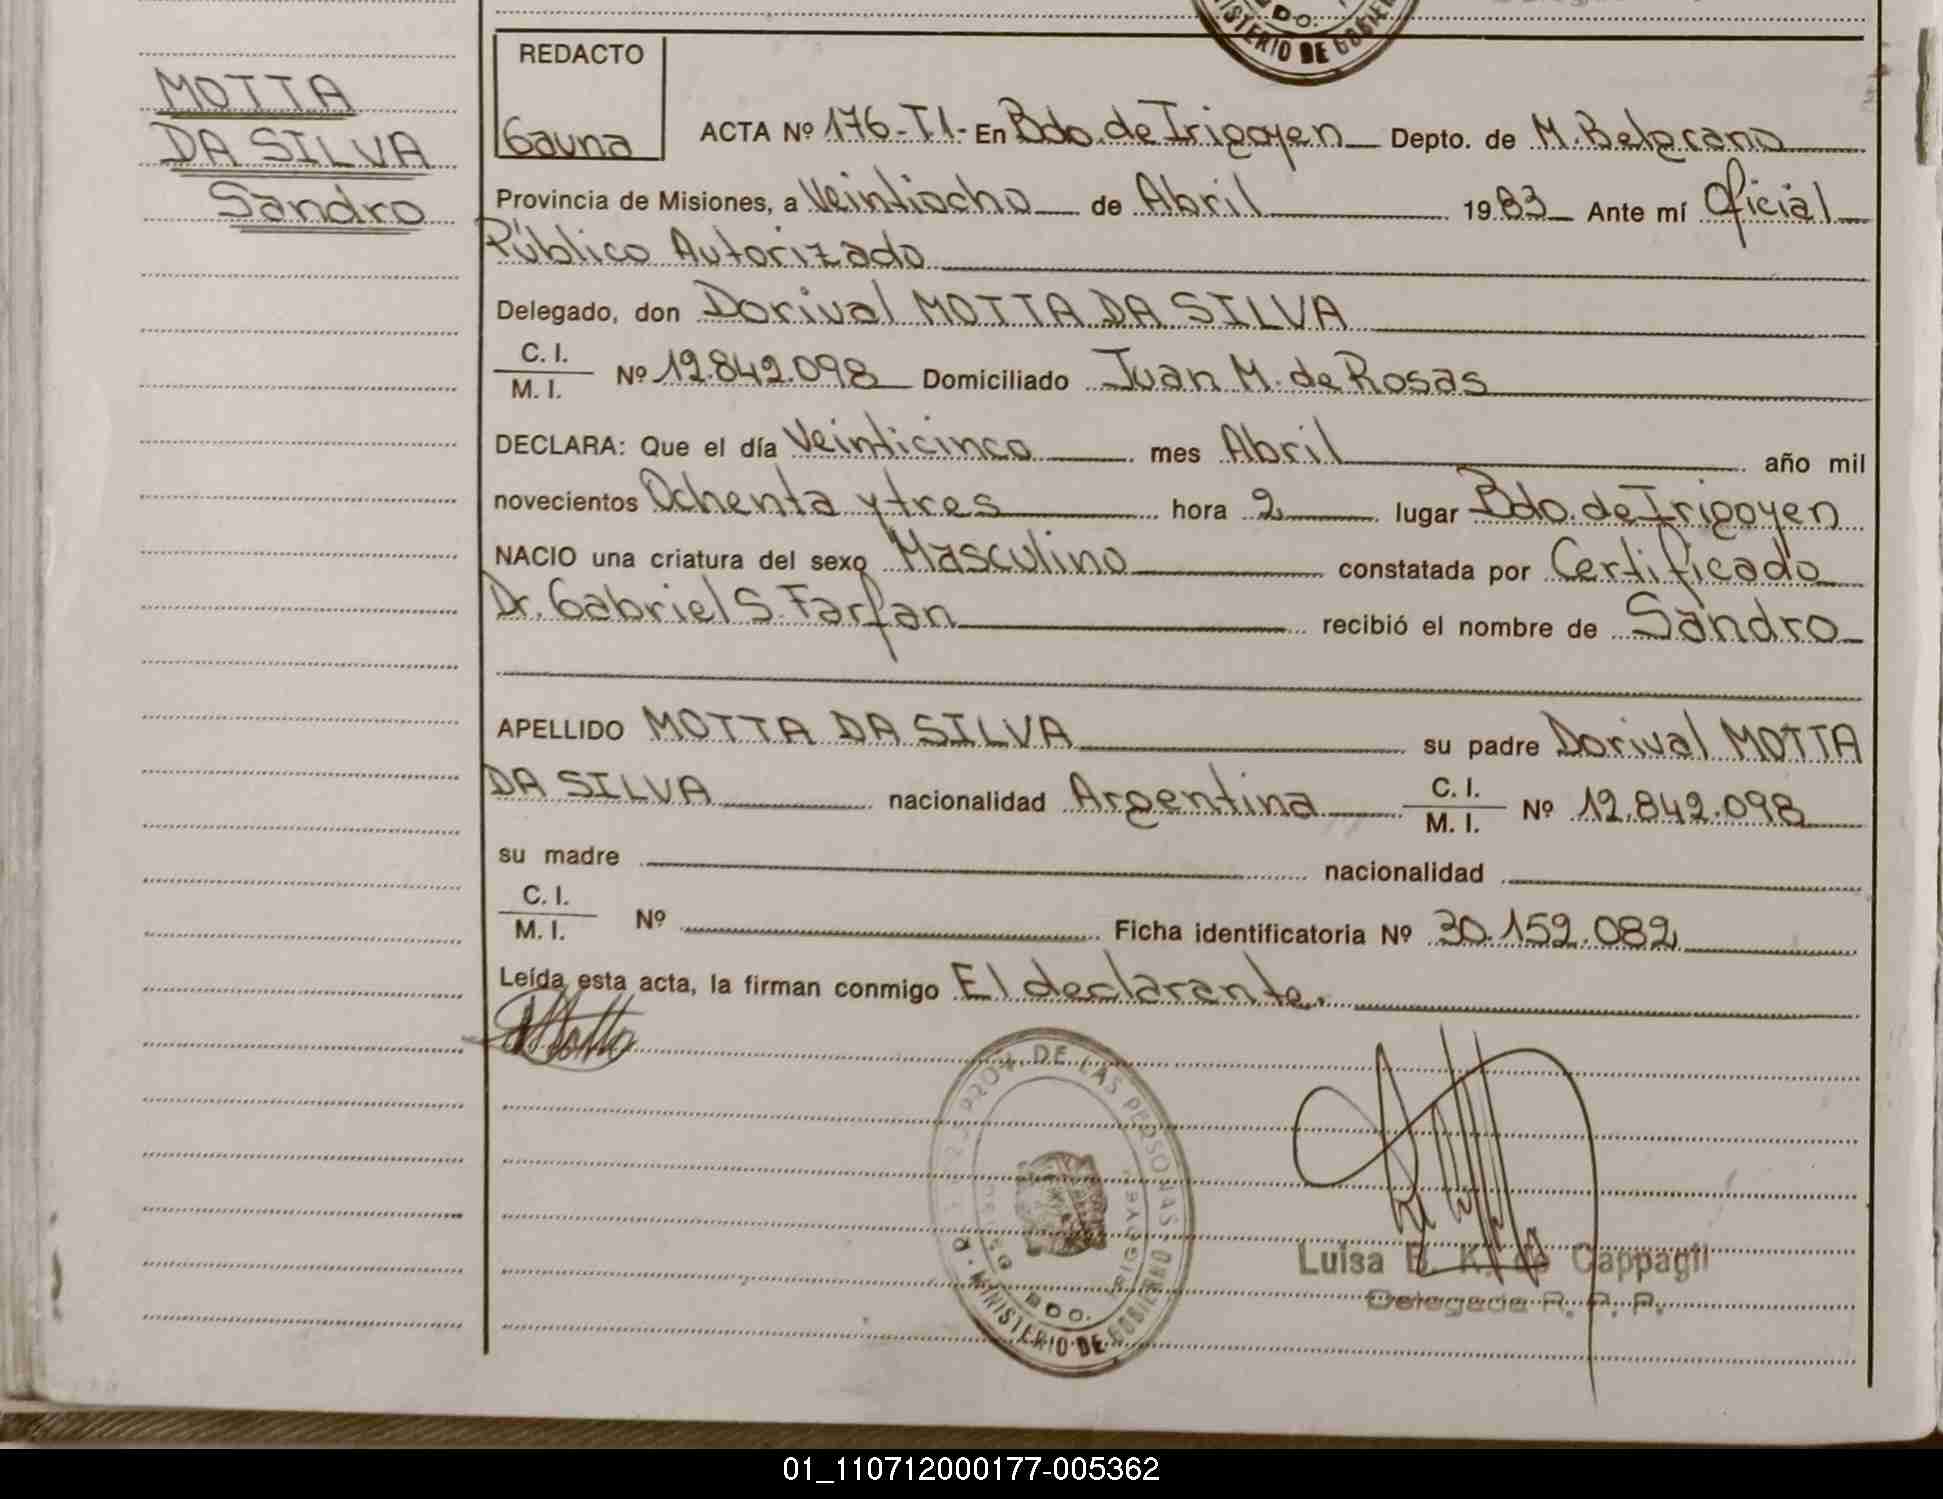 MOTTA
DA SILVA
Sandro
DO.
MINISTERIO DE GOBIERNO
REDACTO
Gauna
ACTA Nº 176-T1- En Bdo. de Irigoyen Depto. de M. Belgrano
Provincia de Misiones, a Veintiocho de Abril 1983 Ante mí Oficial
Público Autorizado
Delegado, don Dorival MOTTA DA SILVA
C. I.
M. I. Nº 12.842.098 Domiciliado Juan M. de Rosas
DECLARA: Que el día Veinticinco mes Abril año mil
novecientos Ochenta y tres hora 2 lugar Bdo. de Irigoyen
NACIO una criatura del sexo Masculino constatada por Certificado
Dr. Gabriel S. Farfan recibió el nombre de Sandro
APELLIDO MOTTA DA SILVA su padre Dorival MOTTA
DA SILVA nacionalidad Argentina C. I.
M. I. Nº 12.842.098
su madre nacionalidad
C. I.
M. I. Nº Ficha identificatoria Nº 30.152.082
Leída esta acta, la firman conmigo El declarante.
PROV. DE LAS PERSONAS
MINISTERIO DE GOBIERNO
BDO.
Luisa B. K. de Cappagli
Delegada R. P. P.
01_110712000177-005362